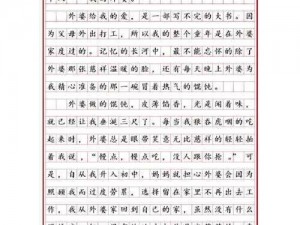 外婆给我的爱，是一部写不完的大书。因
为父母外出打工，所以我的整个童年是在外婆
家度过的。记忆的长河中，最不能忘怀的除了
外婆那张慈祥温暖的脸，还有每天晚上外婆为
我精心准备的那一碗冒着热气的馄饨。
外婆做的馄饨，皮薄馅香，光是闻着味，
就已经让我垂涎三尺了，每当我狼吞虎咽的吃
起来时，外婆总是眼带笑意无比慈祥的轻轻拍
着我说，“慢点，慢点吃，没人跟你抢。”可
是，自从我升入初中，妈妈就担心外婆会因为
照顾我而过度劳累，选择留在家里不再出去工
作，我从外婆家回到自己的家，虽然没有什么